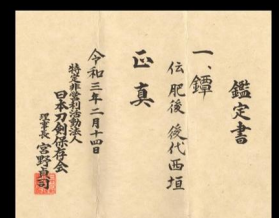 鑑定書
一、鐔
伝 肥後 後代西垣
正真
令和三年二月十四日
特定非営利活動法人
日本刀剣保存会
理事長 宮野貞司